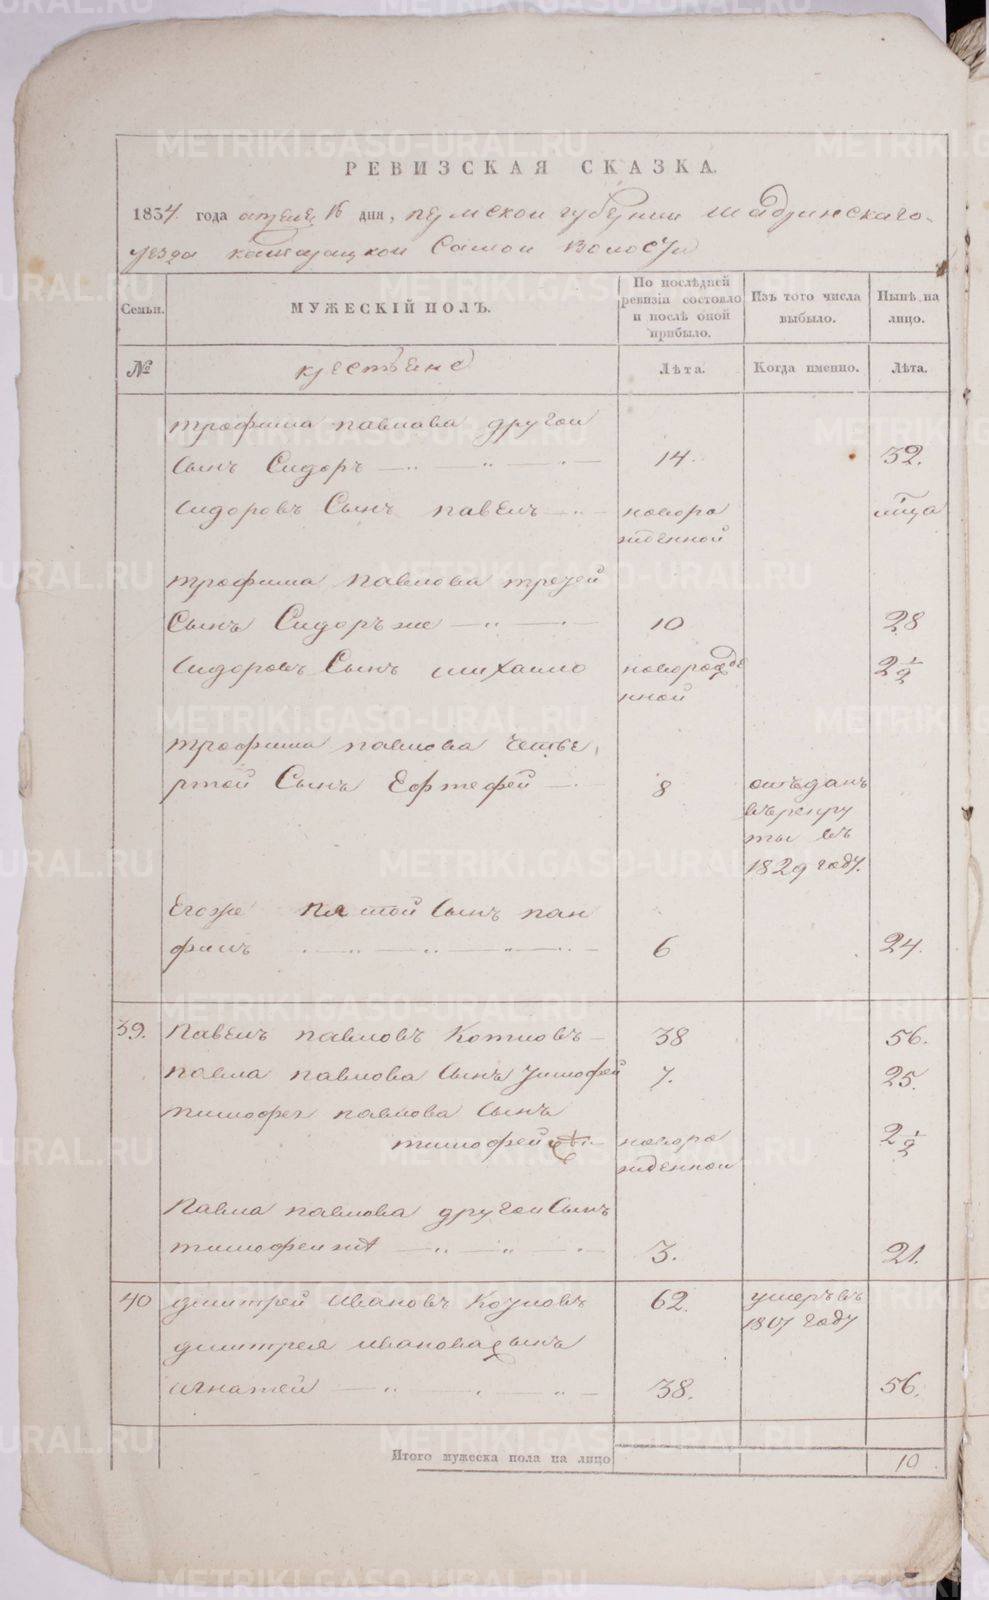 РЕВИЗСКАЯ СКАЗКА.
1834 года апреля 16 дня, пермской губернии Шадринскаго
уезда самой волости
Семьи. МУЖЕСКІЙ ПОЛЪ. По послѣдней ревизіи состояло и послѣ оной прибыло. Изъ того числа выбыло. Нынѣ на лицо.
№ крестьяне Лѣта. Когда именно. Лѣта.
трофима павлова другой
сынъ Сидоръ 14. 32.
Сидоровъ Сынъ павелъ новоро
жденной
трофима павлова третей
Сынъ Сидоръ же 10 28
Сидоровъ Сынъ михаило новорожде 2½
нной
трофима павлова четве
ртой Сынъ Ефтефей 8 отъданъ
въ рекру
ты въ
1829 году.
Егоже пятой Сынъ пан
филъ 6 24.
39. Павелъ павловъ Котловъ 38 56.
павла павлова Сынъ тимофей 7. 25.
тимофея павлова Сынъ
тимофей новоро 2½
жденной
Павла павлова другой Сынъ
тимофей же 3. 21.
40 дмитрей Ивановъ Козловъ 62. умеръ въ
1817 году
дмитрея иванова сынъ
игнатей 38. 56.
Итого мужеска пола на лицо 10
METRIKI.GASO-URAL.RU